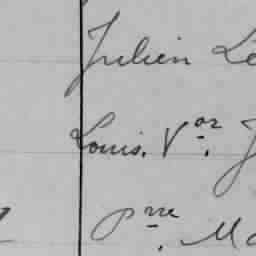 Julien Le
Louis. Vor. J
Pne. Ma